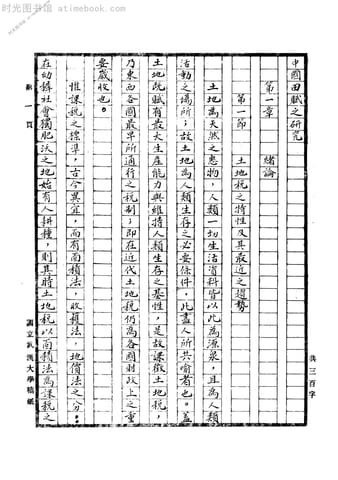 时光图书馆 · atimebook.com
中國田賦之研究
第一章 緒論
第一節 土地稅之特性及其最近之趨勢
土地為天然之惠物，人類一切生活資料皆以此為源泉，且為人類
活動之場所；故土地為人類生存之必要條件，此盡人所共喻者也。蓋
土地既賦有最大生產能力與維持人類生存之基性，是故課徵土地稅，
乃東西各國最早所通行之稅制；即在近代土地稅仍為各國財政上之重
要歲收也。
惟課稅之標準，古今異宜，而有面積法，收穫法，地價法之分。
在幼稚社會獨肥沃之地始有人耕種，則其時土地稅以面積法為課稅之
第一頁
國立武漢大學稿紙
共三百字